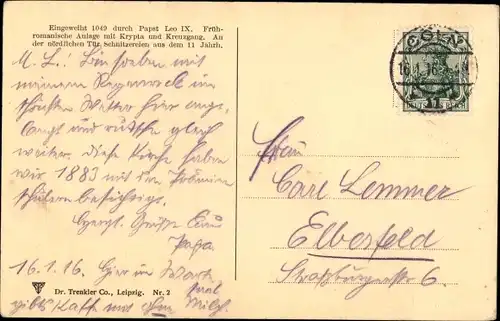 Eingeweiht 1049 durch Papst Leo IX. Früh-
romanische Anlage mit Krypta und Kreuzgang. An
der nördlichen Tür Schnitzereien aus dem 11 Jahrh.
M. L.! Bin soeben mit
meinem Regenrock im
schönsten Wetter hier ange-
langt und rutsche gleich
weiter. Diese Kirche haben
wir 1883 mit den
schülern besichtigt.
Herzl. Grüsse Euer
Papa.
16.1.16. Hier im
gibts Kaffee nur ohne Milch.
Dr. Trenkler Co., Leipzig. Nr. 2
CÖLN
16.1.16
DEUTSCHES REICH
Frau
Carl Lemmer
Elberfeld
Straßburgerstr 6.